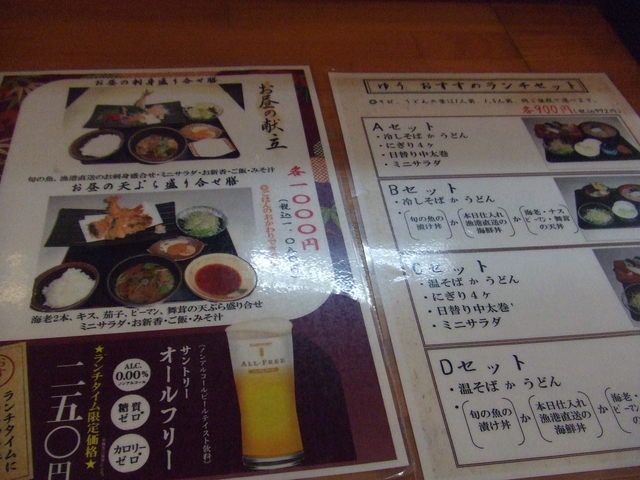 お昼の刺身盛り合せ膳
お昼の献立
旬の魚、漁港直送のお刺身盛合せ・ミニサラダ・お新香・ご飯・みそ汁
お昼の天ぷら盛り合せ膳
各一〇〇〇円
海老2本、キス、茄子、ピーマン、舞茸の天ぷら盛り合せ
ミニサラダ・お新香・ご飯・みそ汁
サントリー
オールフリー
(ノンアルコールビールテイスト飲料)
ALC.
0.00%
ノンアルコール
糖質
ゼロ
カロリー
ゼロ
★ランチタイム限定価格★
二五〇円
ALL-FREE
ランチタイムに
ゆう おすすめランチセット
各900円(税込972円)
Aセット
・冷しそば か うどん
・にぎり4ヶ
・日替り中太巻
・ミニサラダ
Bセット
・冷しそば か うどん
・(旬の魚の漬け丼)か(本日仕入れ漁港直送の海鮮丼)か(海老・ナスピーマン・舞茸の天丼)
Cセット
・温そば か うどん
・にぎり4ヶ
・日替り中太巻
・ミニサラダ
Dセット
・温そば か うどん
・(旬の魚の漬け丼)か(本日仕入れ漁港直送の海鮮丼)か(海老・